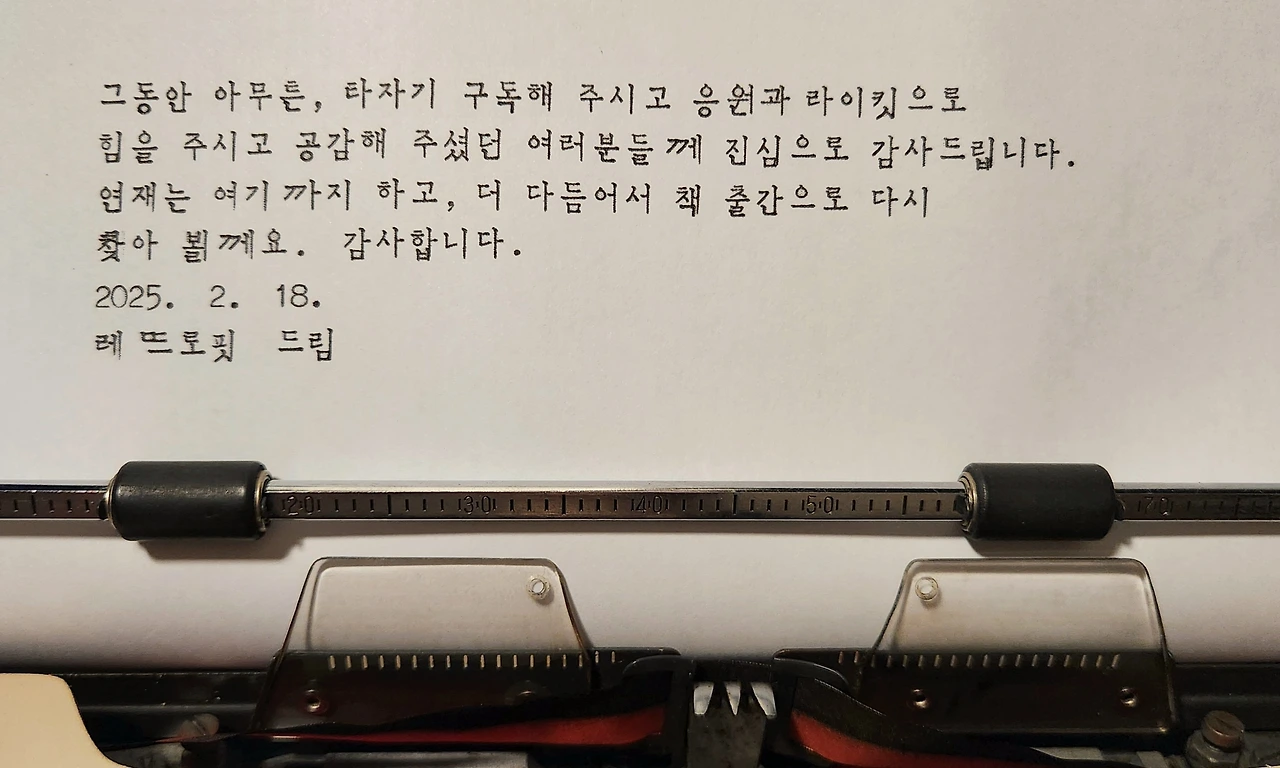 그동안 아무튼, 타자기 구독해 주시고 응원과 라이킷으로
힘을 주시고 공감해 주셨던 여러분들께 진심으로 감사드립니다.
연재는 여기까지 하고, 더 다듬어서 책 출간으로 다시
찾아 뵐께요. 감사합니다.
2025. 2. 18.
레 뜨로핏 드림
20 30 40 50 70